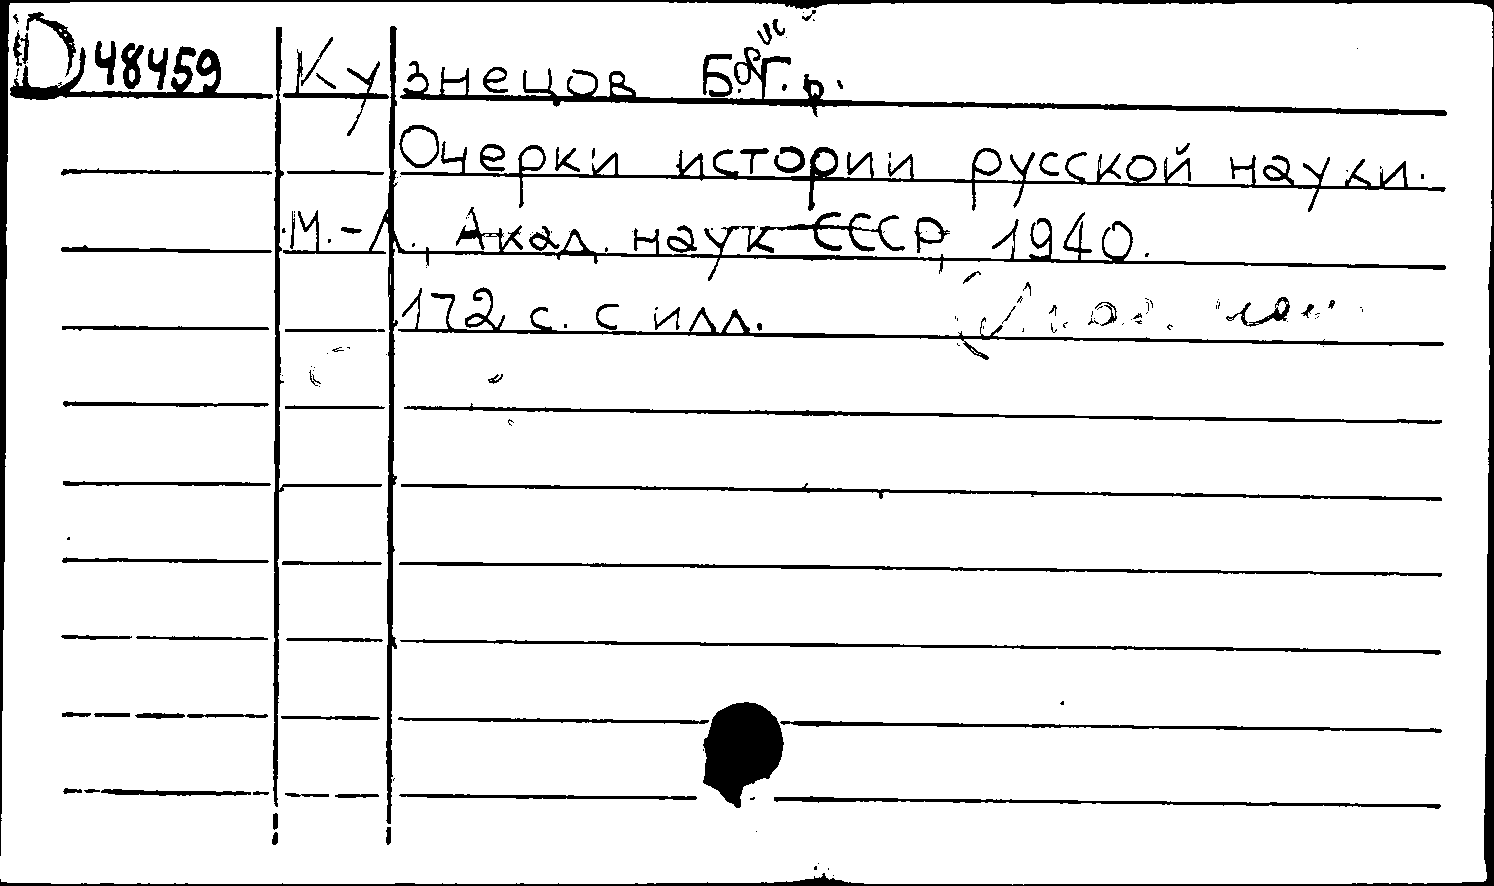 D 48459 Кузнецов Борис Г.р.
Очерки истории русской науки.
М.-Л., Акад. наук СССР, 1940.
172 с. с илл.